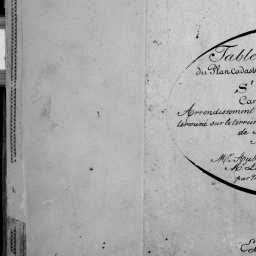 Table
du Plan Cadas
S
Can
Arrondissement
terminé sur le terrain
de
Mr. Aub
A. L
par